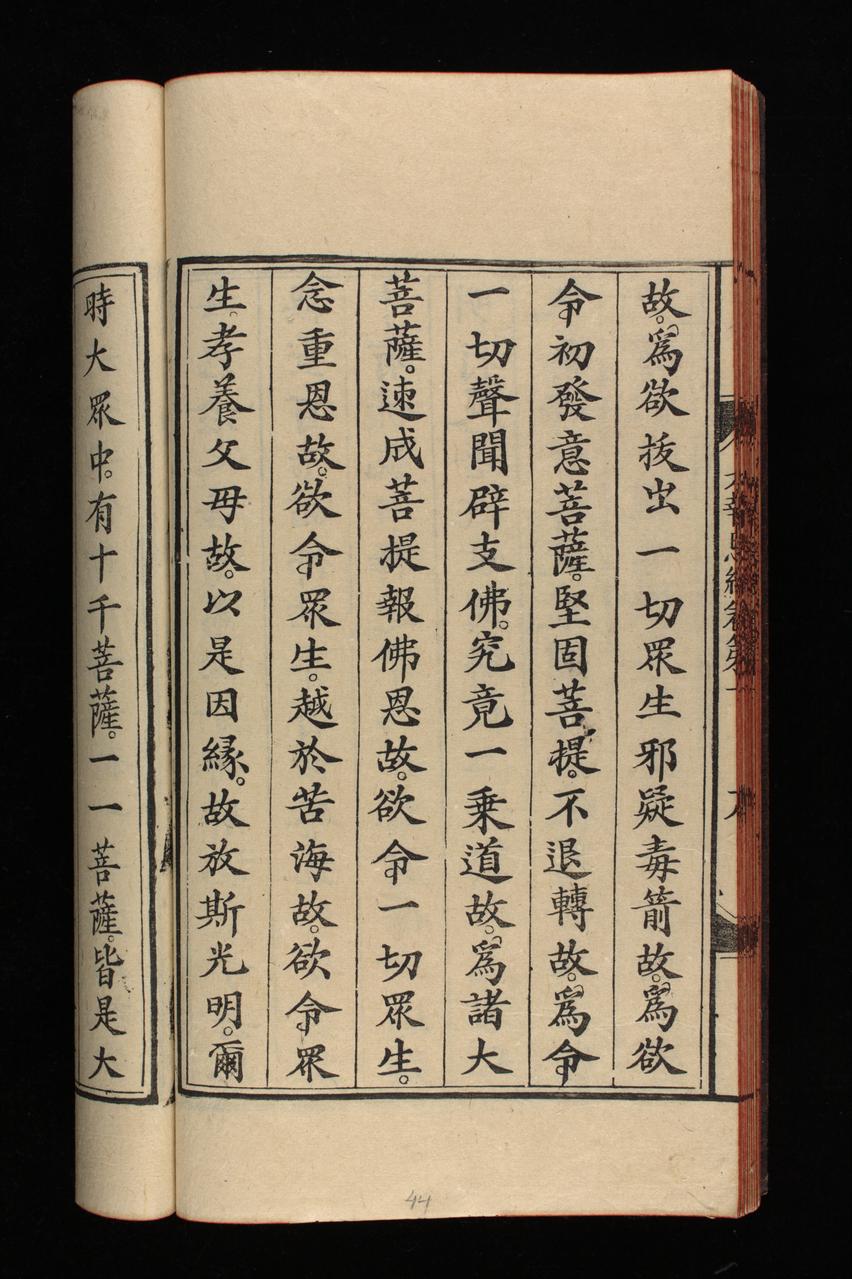 故。爲欲拔出一切眾生邪疑毒箭故。爲欲
令初發意菩薩。堅固菩提。不退轉故。爲令
一切聲聞辟支佛。究竟一乗道故。爲諸大
菩薩。速成菩提報佛恩故。欲令一切眾生。
念重恩故。欲令眾生。越於苦海故。欲令眾
生。孝養父母故。以是因緣。故放斯光明。爾
時大眾中。有十千菩薩。一一菩薩。皆是大
44